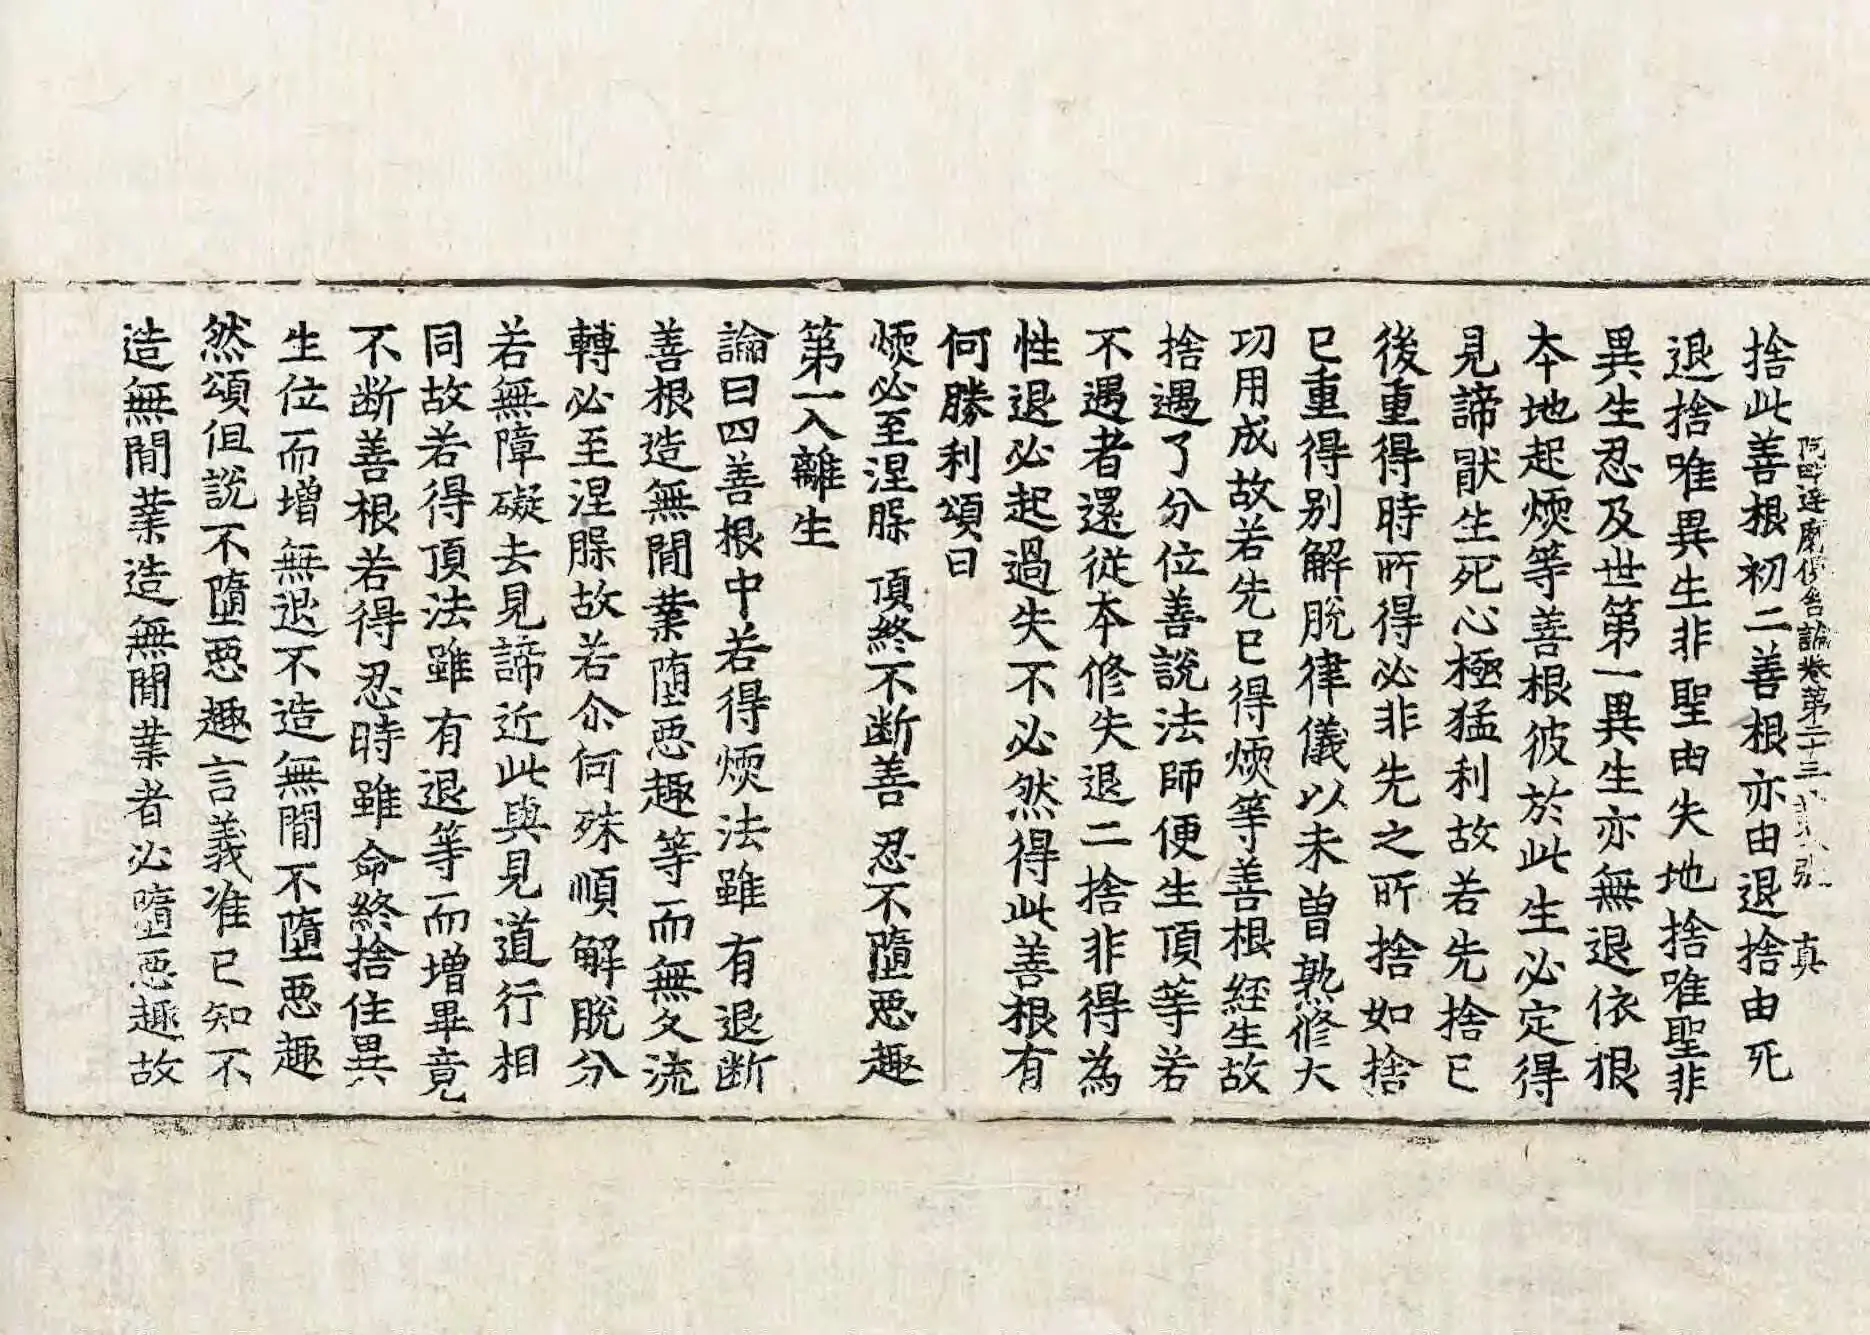 阿毗達磨俱舍論卷第二十三 第六張 真
捨此善根初二善根亦由退捨由死
退捨唯異生非聖由失地捨唯聖非
異生忍及世第一異生亦無退依根
本地起煗等善根彼於此生必定得
見諦猒生死心極猛利故若先捨已
後重得時所得必非先之所捨如捨
已重得别解脫律儀以未曾熟修大
功用成故若先已得煗等善根經生故
捨遇了分位善說法師便生頂等若
不遇者還從本修失退二捨非得為
性退必起過失不必然得此善根有
何勝利頌曰
煗必至涅槃 頂終不断善 忍不墮惡趣
第一入離生
論曰四善根中若得煗法雖有退断
善根造無間業墮惡趣等而無久流
轉必至涅槃故若尒何殊順解脫分
若無障礙去見諦近此與見道行相
同故若得頂法雖有退等而增畢竟
不断善根若得忍時雖命終捨住異
生位而增無退不造無間不墮惡趣
然頌但說不墮惡趣言義准已知不
造無間業造無間業者必墮惡趣故